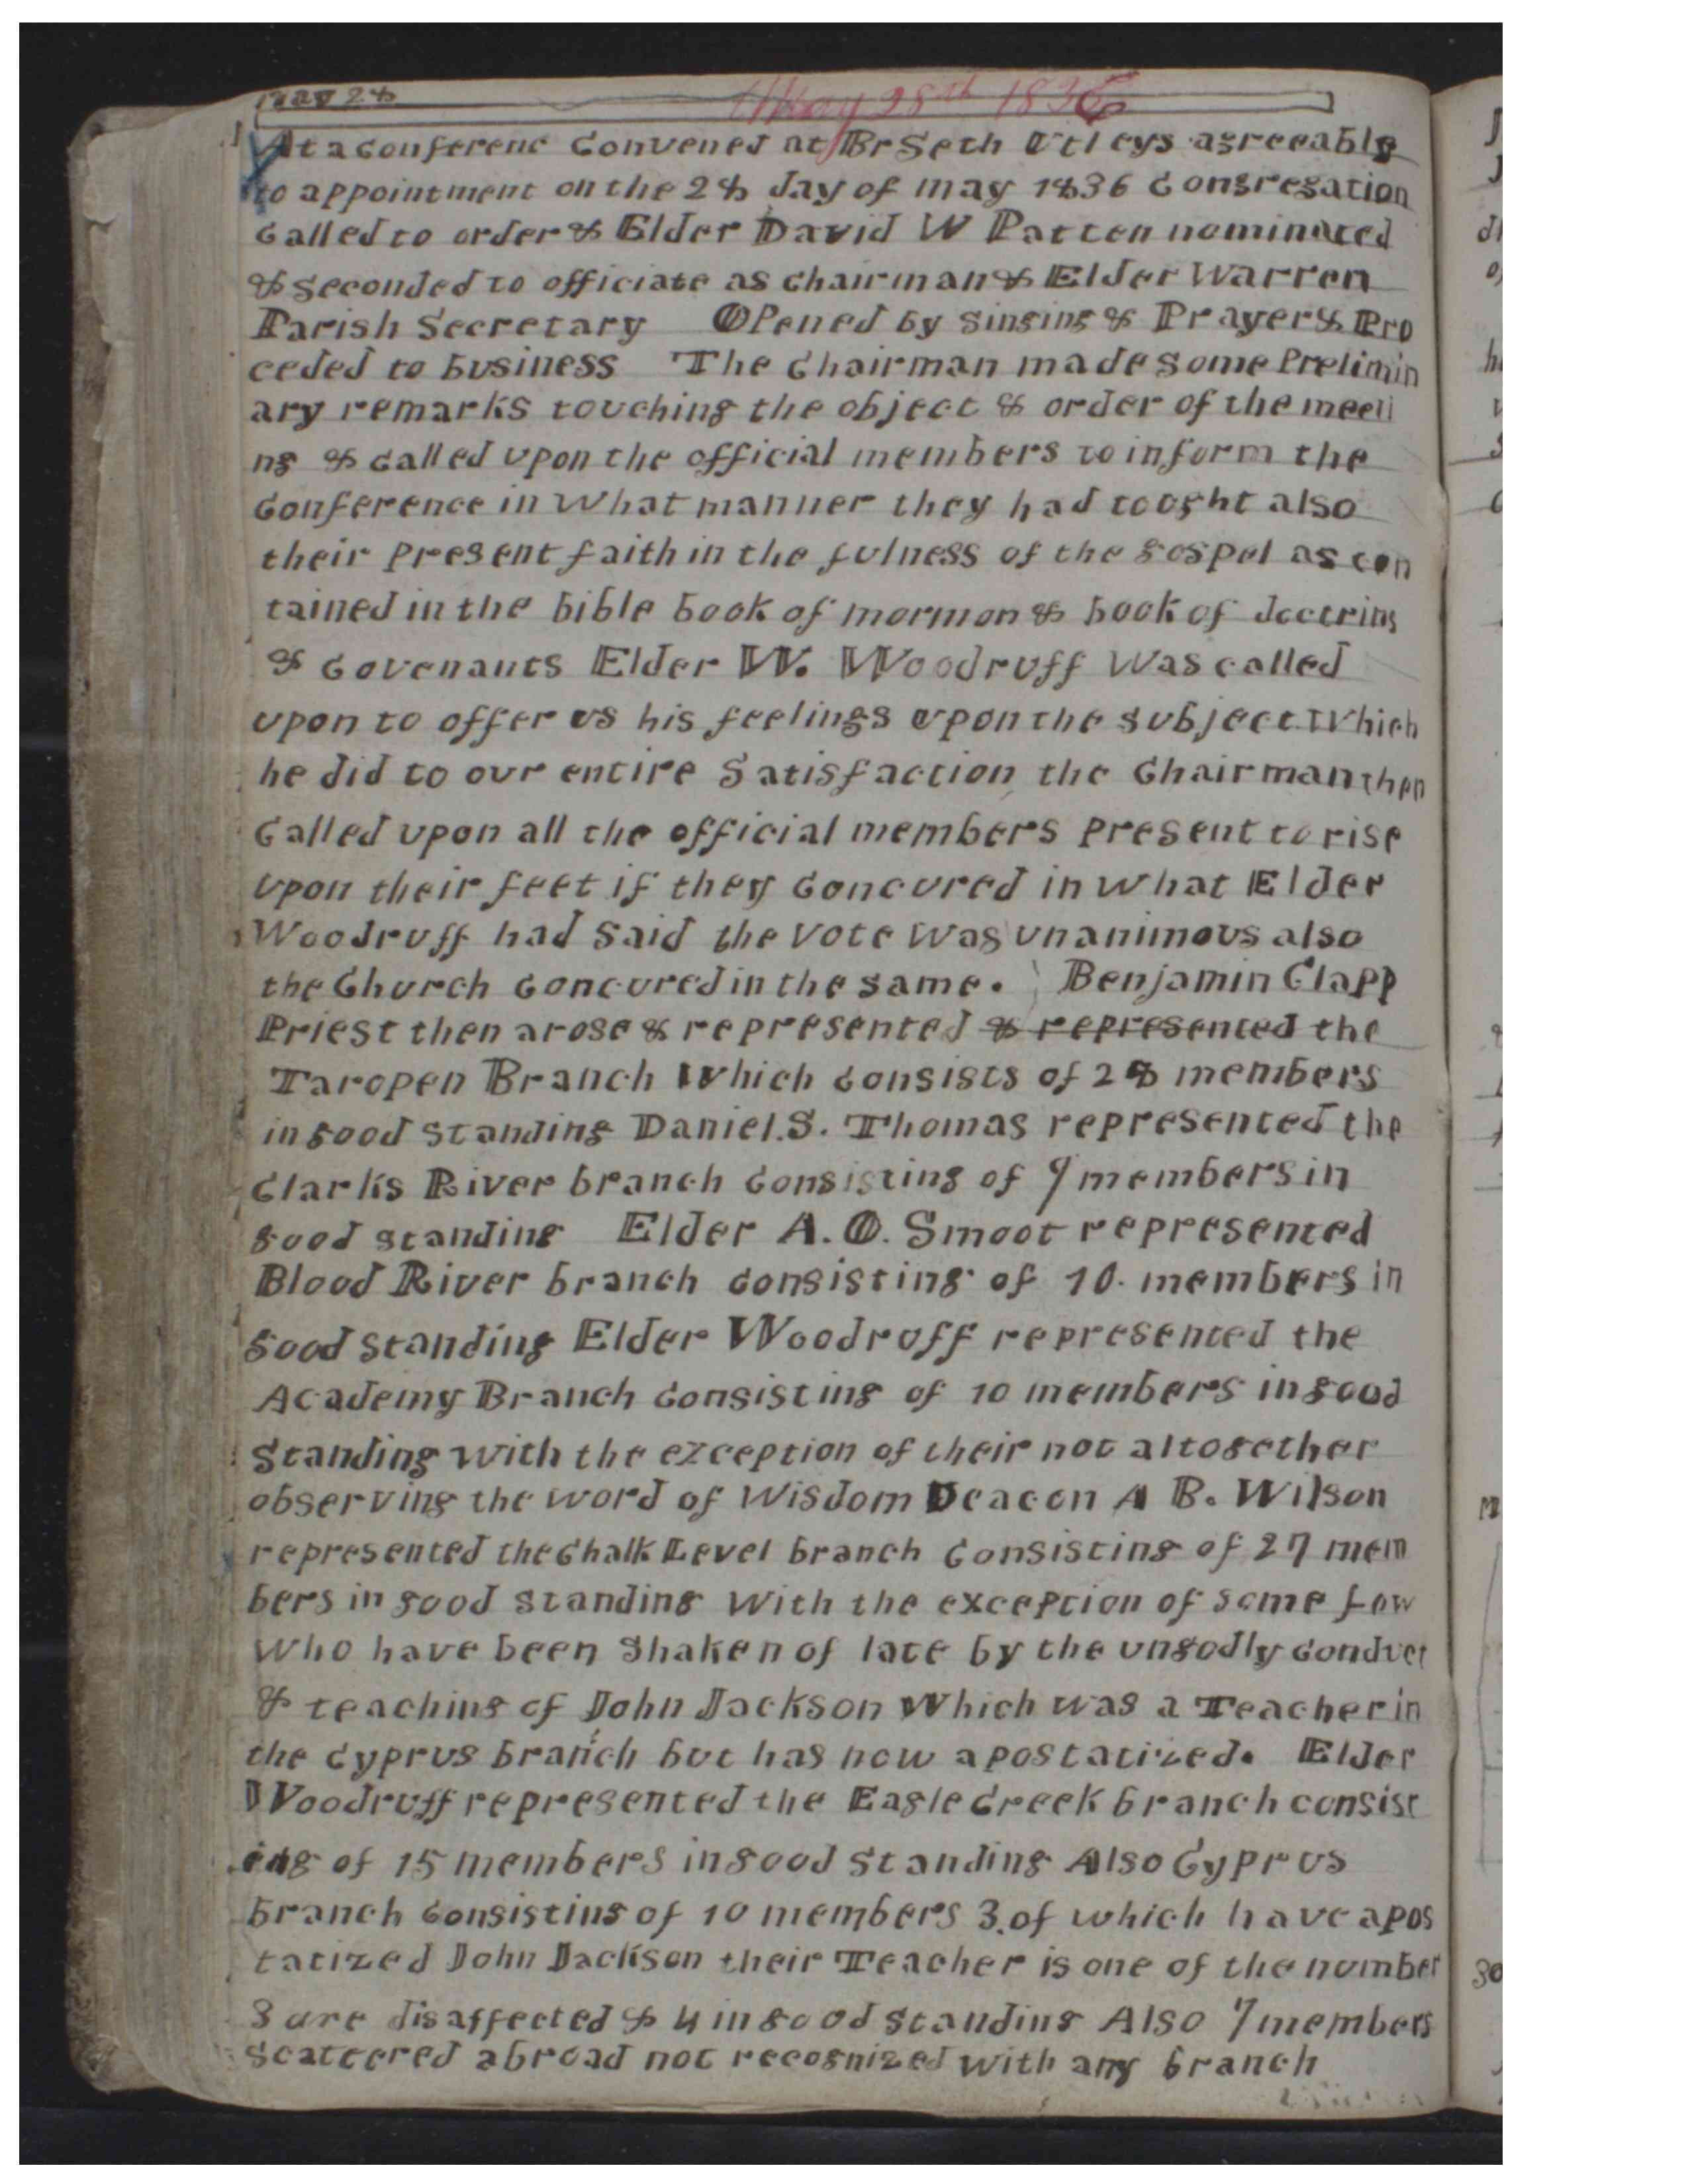 May 28
May 28th 1836
At a Conferenc Convened at Br Seth Utleys agreeable
to appointment on the 28 day of may 1836 Congregation
Called to order & Elder David W Patten nominated
& seconded to officiate as Chairman & Elder Warren
Parish Secretary Opened by singing & Prayer & Pro
ceded to business The Chairman made some Prelimin
ary remarks touching the object & order of the meeti
ng & called upon the official members to inform the
Conference in what manner they had tought also
their present faith in the fulness of the gospel as con
tained in the bible book of mormon & book of doctrins
& Covenants Elder W. Woodruff was called
upon to offer us his feelings upon the subject which
he did to our entire satisfaction the Chairman then
Called upon all the official members present to rise
upon their feet if they Concured in what Elder
Woodruff had said the vote was unanimous also
the Church Concured in the same. Benjamin Clapp
Priest then arose & represented & represented the
Taropen Branch which consists of 28 members
in good standing Daniel. S. Thomas represented the
Clarks River branch Consisting of 7 members in
good standing Elder A. O. Smoot represented
Blood River branch consisting of 10. members in
good standing Elder Woodruff represented the
Academy Branch consisting of 10 members in good
Standing with the exception of their not altogether
observing the word of wisdom Deacon A B. Wilson
represented the Chalk Level branch Consisting of 27 mem
bers in good standing with the exception of some few
who have been shaken of late by the ungodly conduct
& teaching of John Jackson which was a Teacher in
the Cyprus branch but has now apostatized. Elder
Woodruff represented the Eagle Creek branch consist
ing of 15 members in good standing Also Cyprus
branch consisting of 10 members 3. of which have apos
tatized John Jackson their Teacher is one of the number
3 are disaffected & 4 in good standing Also 7 members
scattered abroad not recognized with any branch